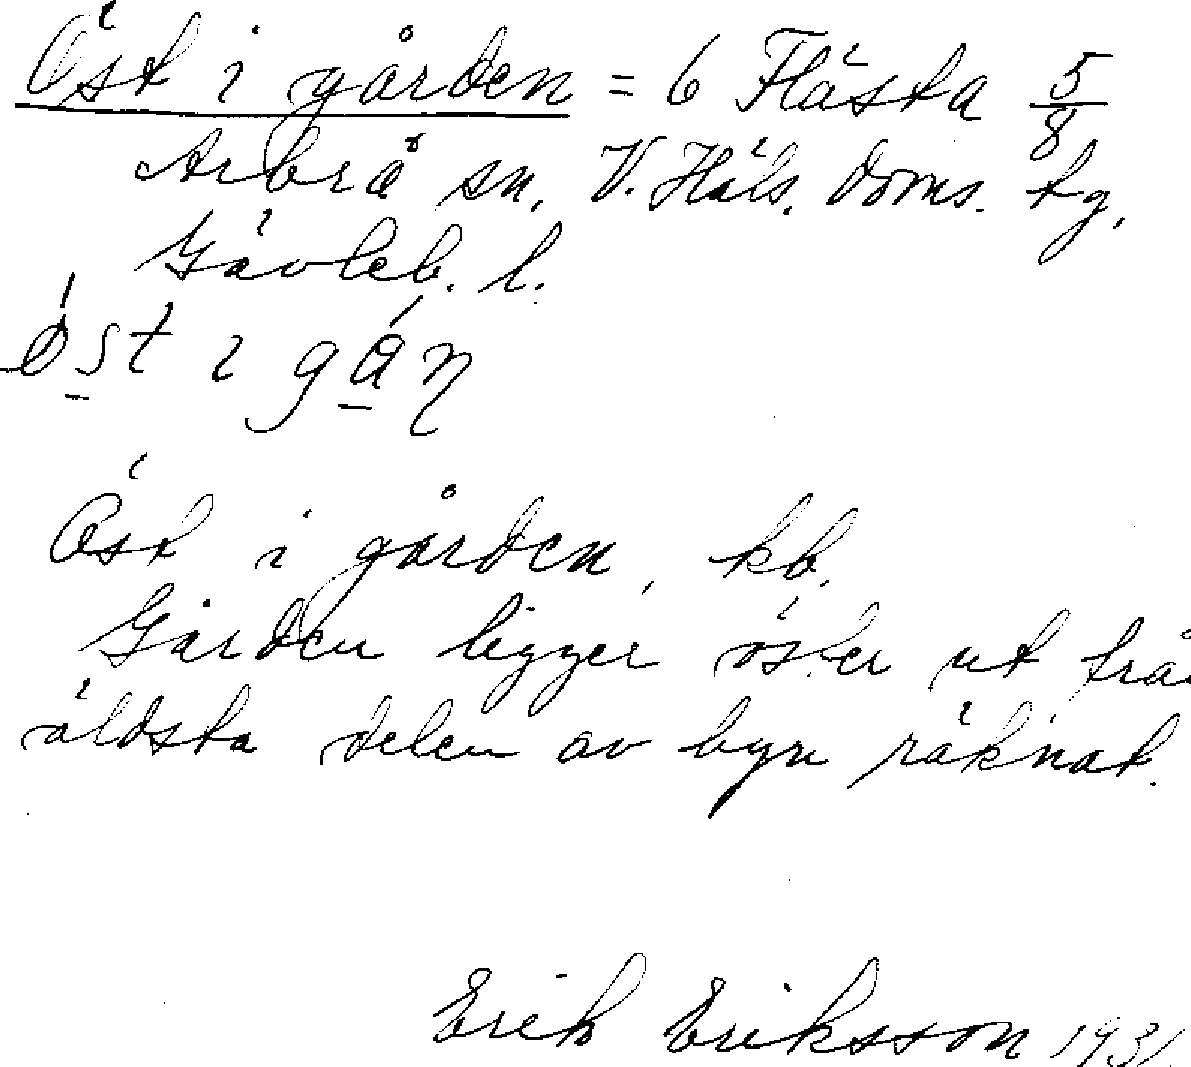 Öst i gården = 6 Flästa 5/8
Arbrå sn. V. Häls. doms. tg.
Gävleb. l.
öst i gån
Öst i gården, kb.
Gården ligger öster ut frå
äldsta delen av byn räknat.
Erik Eriksson 1931.